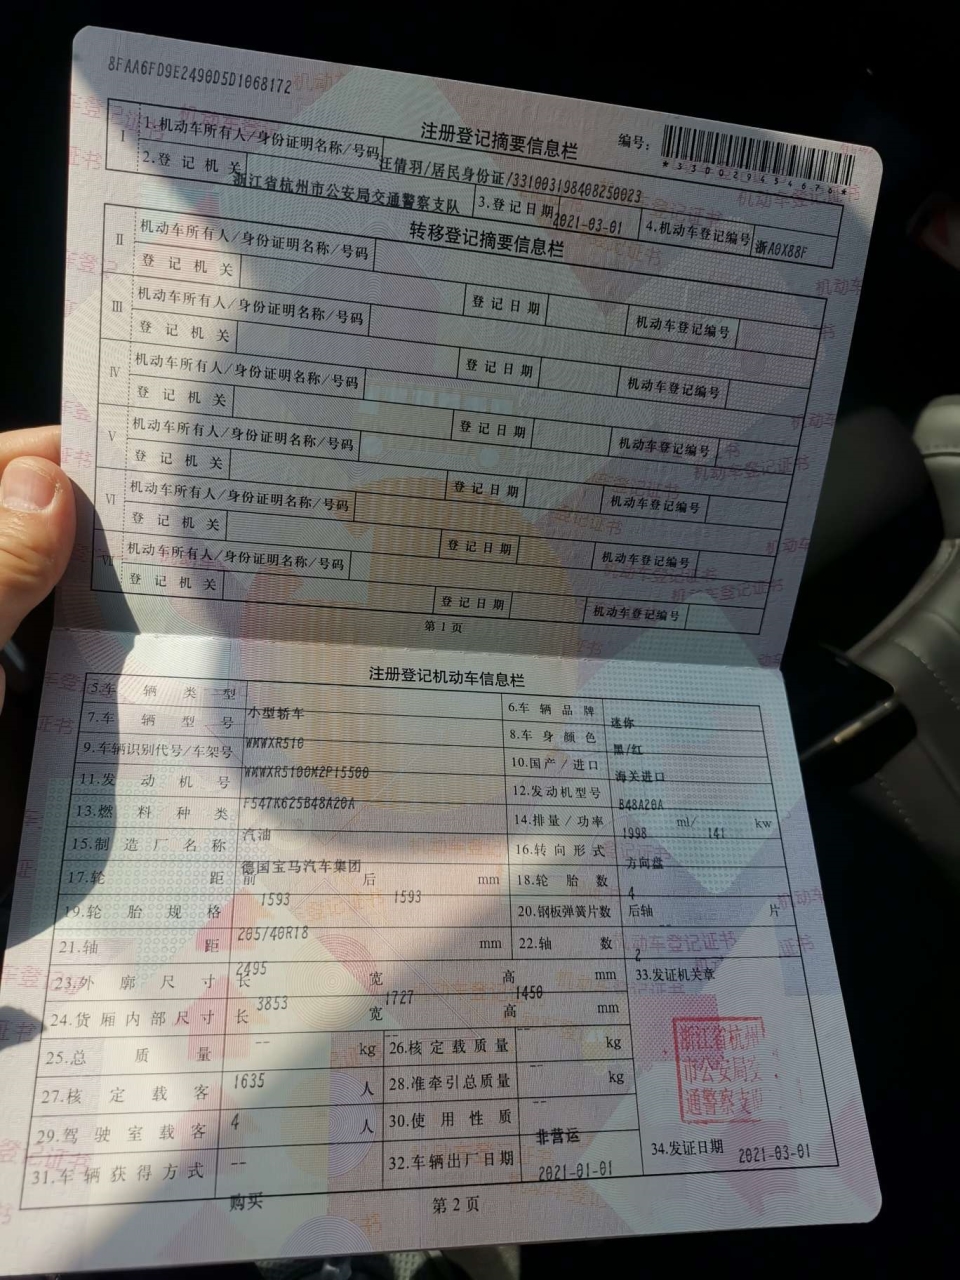 8FAA6FD9E2490D5D1068172
注册登记摘要信息栏
编号:
*330029454676*
I
1.机动车所有人/身份证明名称/号码
汪倩羽/居民身份证/331003198408250023
2.登记机关
浙江省杭州市公安局交通警察支队
3.登记日期
2021-03-01
4.机动车登记编号
浙A0X88F
转移登记摘要信息栏
II
机动车所有人/身份证明名称/号码
登记机关
登记日期
机动车登记编号
III
机动车所有人/身份证明名称/号码
登记机关
登记日期
机动车登记编号
IV
机动车所有人/身份证明名称/号码
登记机关
登记日期
机动车登记编号
V
机动车所有人/身份证明名称/号码
登记机关
登记日期
机动车登记编号
VI
机动车所有人/身份证明名称/号码
登记机关
登记日期
机动车登记编号
VII
机动车所有人/身份证明名称/号码
登记机关
登记日期
机动车登记编号
第1页
注册登记机动车信息栏
5.车辆类型
小型轿车
6.车辆品牌
迷你
7.车辆型号
WMWXR510
8.车身颜色
黑/红
9.车辆识别代号/车架号
WMWXR5100M2P15500
10.国产/进口
海关进口
11.发动机号
F547K625B48A20A
12.发动机型号
B48A20A
13.燃料种类
汽油
14.排量/功率
1998 ml/ 141 kw
15.制造厂名称
德国宝马汽车集团
16.转向形式
方向盘
17.轮距
前 1593 后 1593 mm
18.轮胎数
4
19.轮胎规格
205/40R18
20.钢板弹簧片数
后轴 -- 片
21.轴距
2495 mm
22.轴数
2
23.外廓尺寸
长 3853 宽 1727 高 1450 mm
33.发证机关章
24.货厢内部尺寸
长 -- 宽 -- 高 -- mm
浙江省杭州
市公安局交
通警察支队
25.总质量
1635 kg
26.核定载质量
-- kg
27.核定载客
4 人
28.准牵引总质量
-- kg
29.驾驶室载客
-- 人
30.使用性质
非营运
31.车辆获得方式
购买
32.车辆出厂日期
2021-01-01
34.发证日期
2021-03-01
第2页